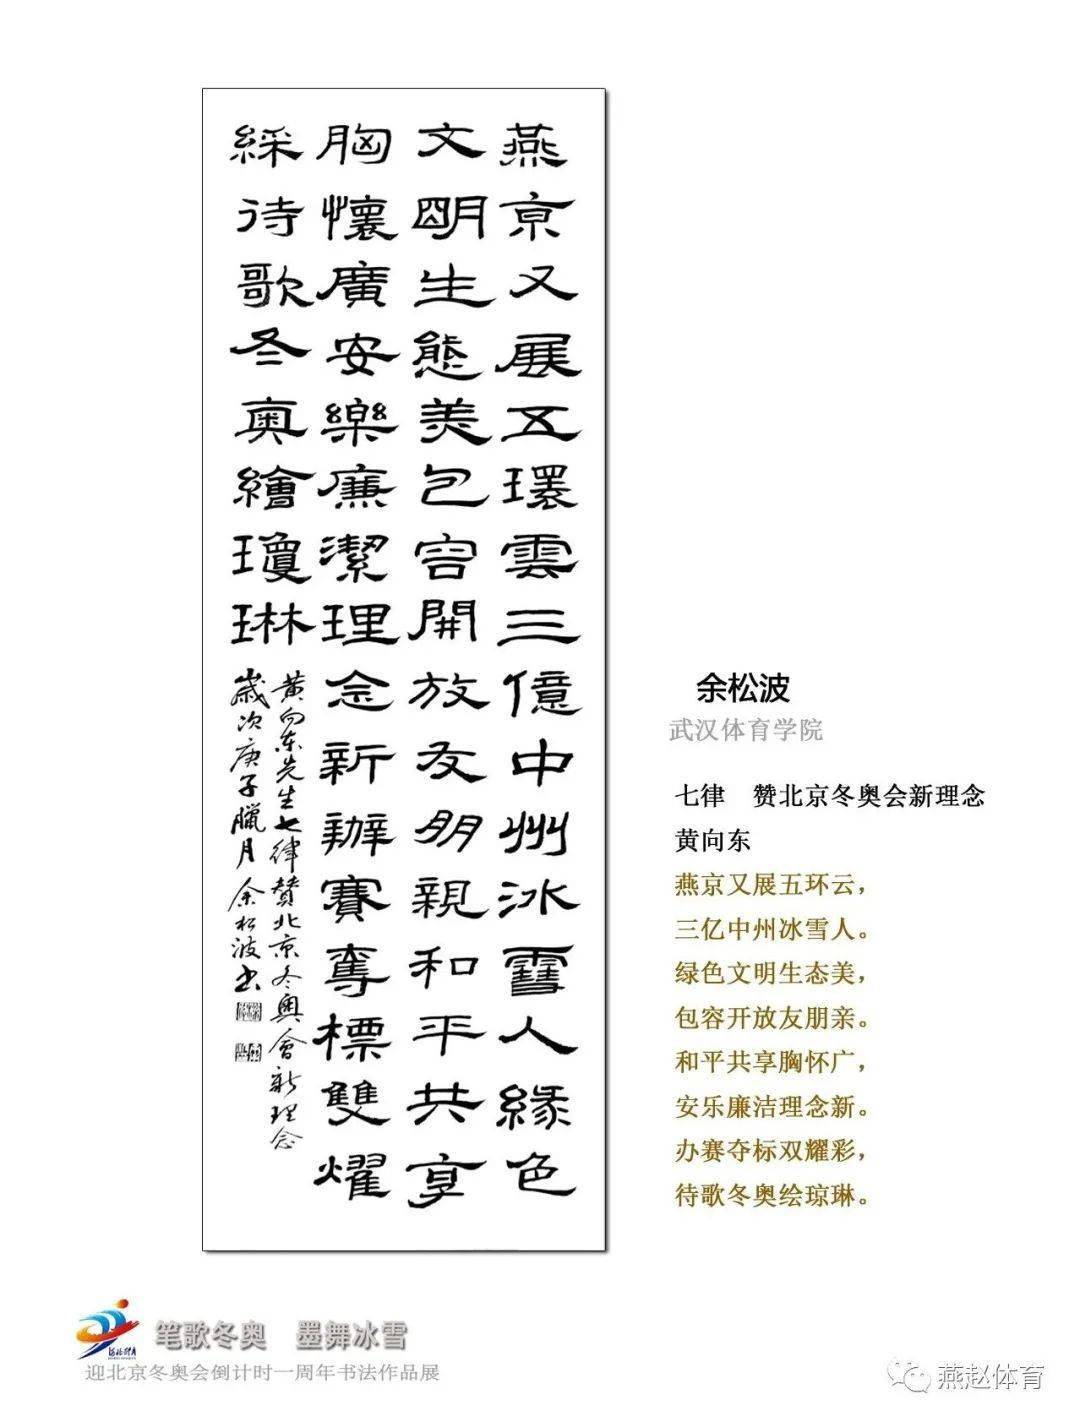 燕京又展五環雲三億中州冰雪人緑色
文明生態美包容開放友朋親和平共享
胸懷廣安樂廉潔理念新辦賽奪標雙耀
綵待歌冬奥繪瓊琳
黄向东先生七律贊北京冬奥會新理念
歲次庚子臘月余松波书
余松波
武汉体育学院
七律 赞北京冬奥会新理念
黄向东
燕京又展五环云，
三亿中州冰雪人。
绿色文明生态美，
包容开放友朋亲。
和平共享胸怀广，
安乐廉洁理念新。
办赛夺标双耀彩，
待歌冬奥绘琼琳。
笔歌冬奥 墨舞冰雪
迎北京冬奥会倒计时一周年书法作品展
燕赵体育